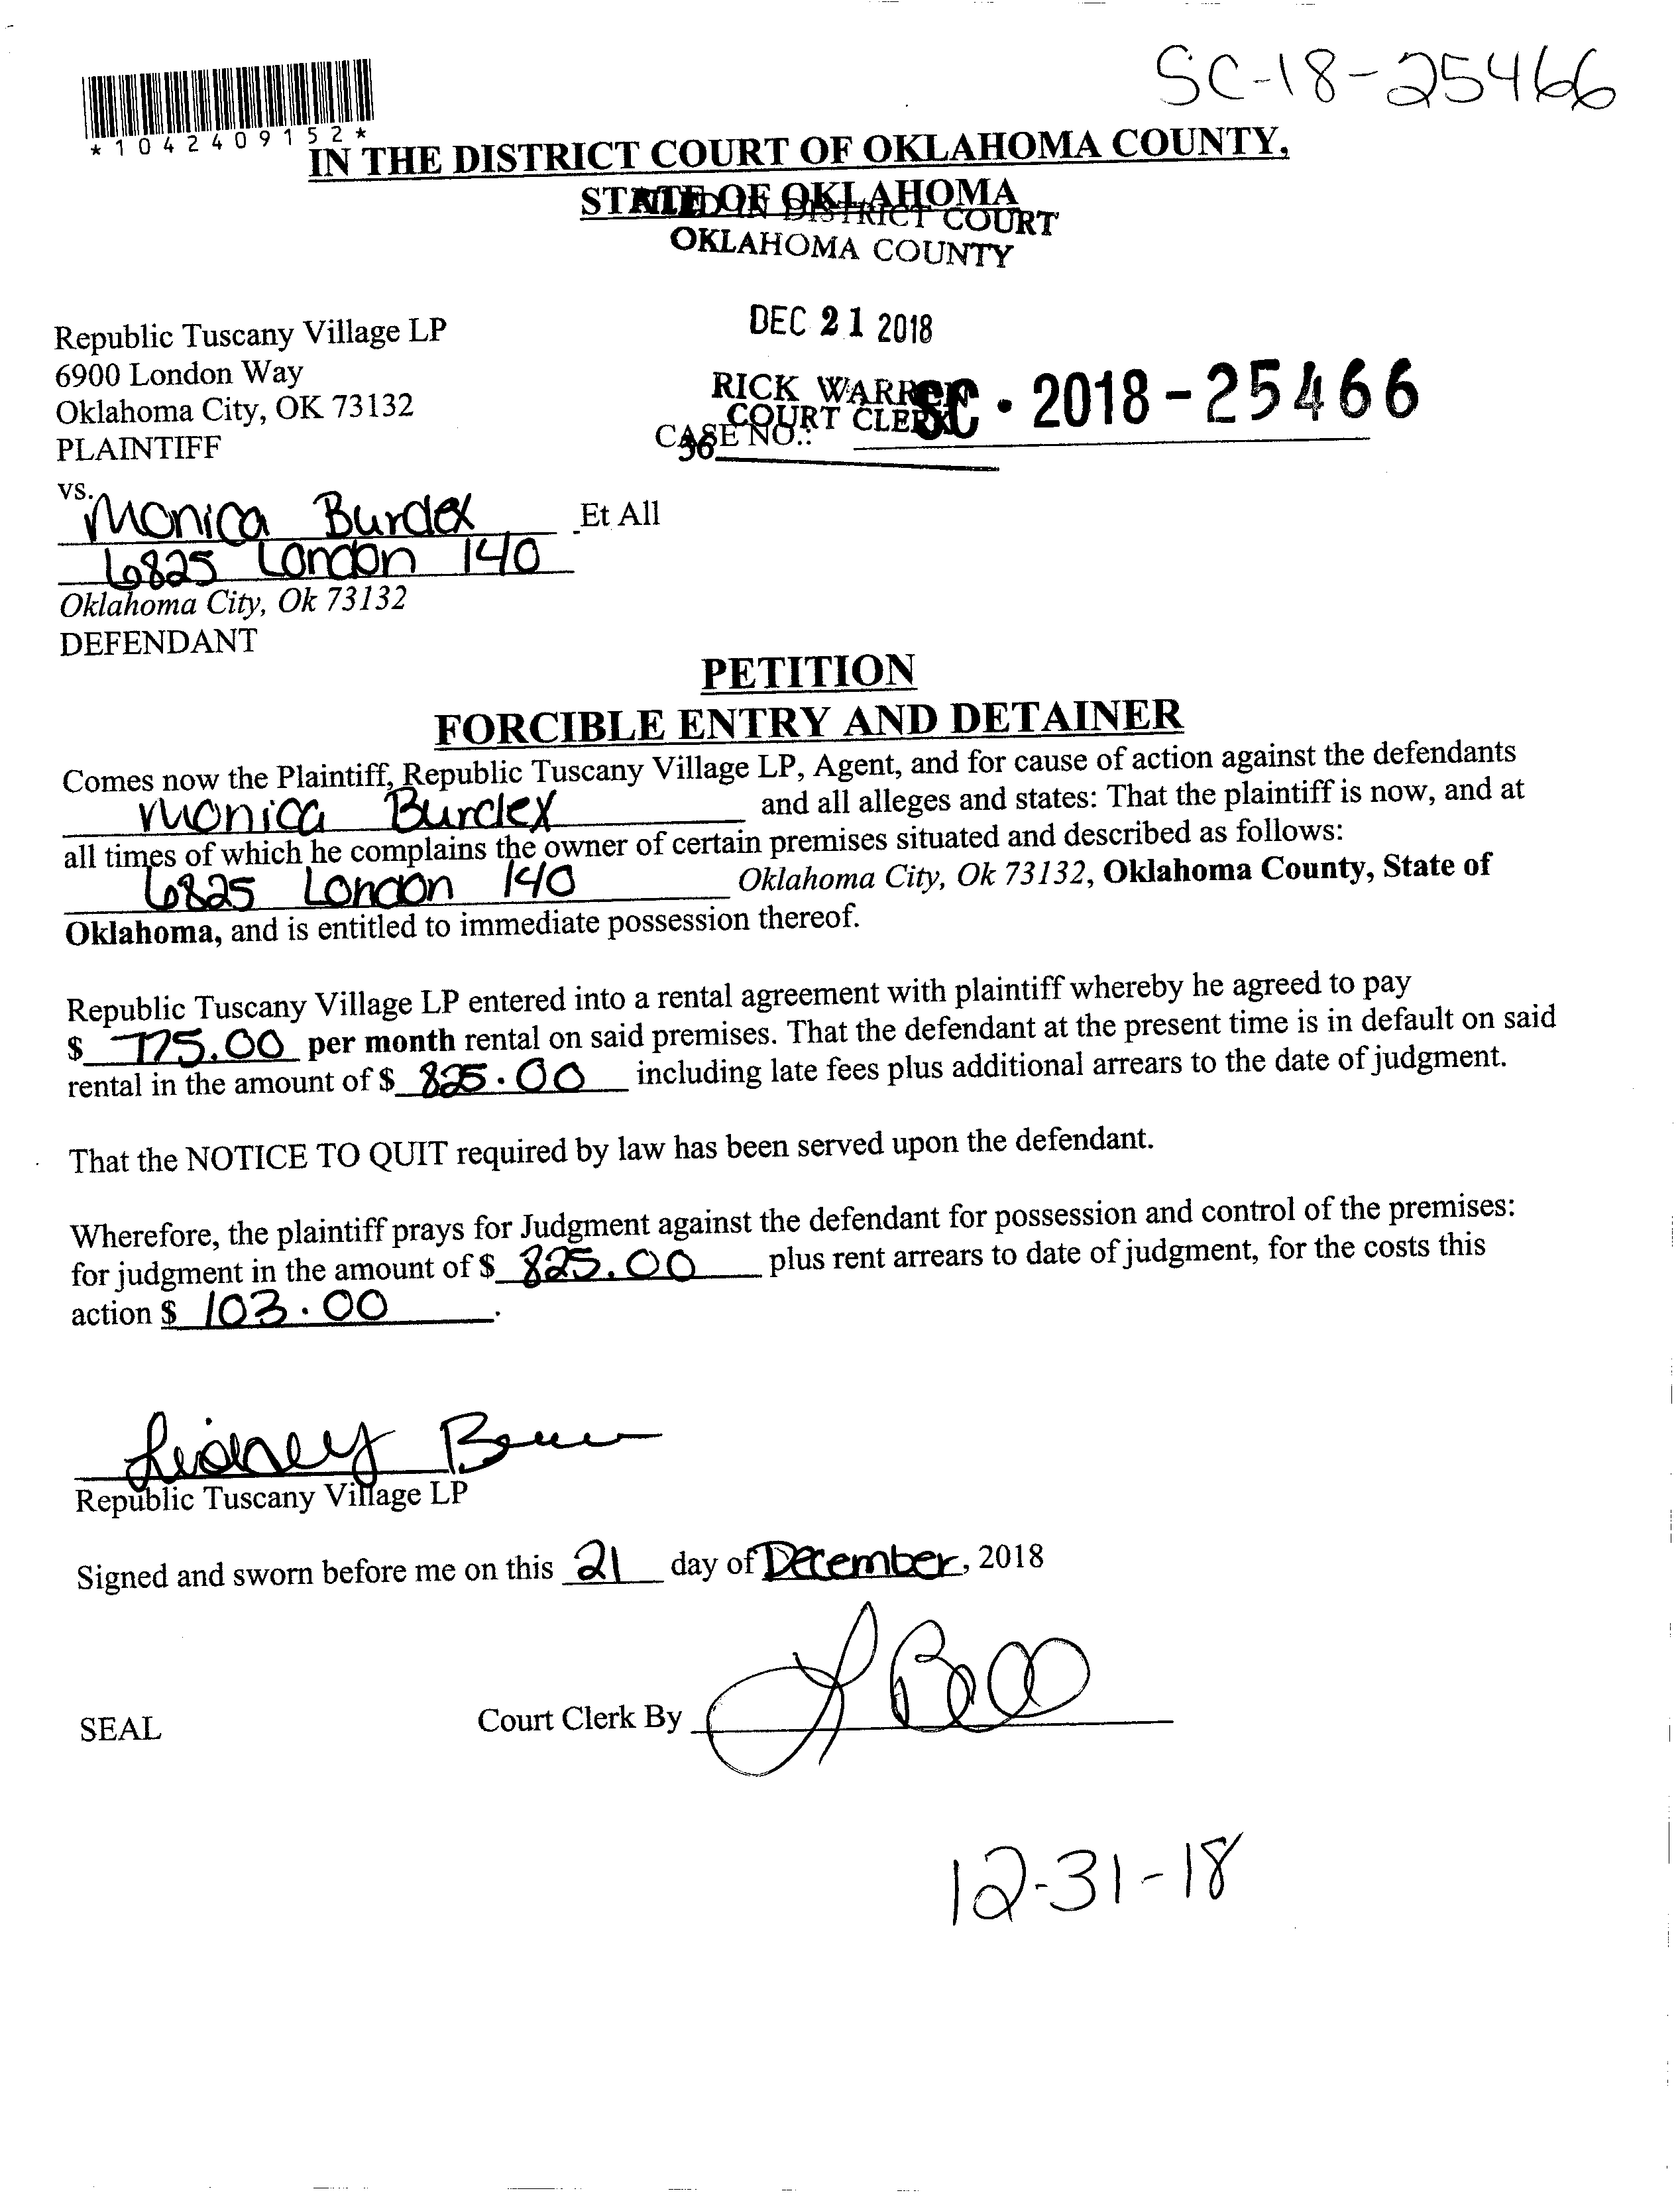 SC-18-25466
*1042409152*
IN THE DISTRICT COURT OF OKLAHOMA COUNTY,
STATE OF OKLAHOMA
FILED IN DISTRICT COURT
OKLAHOMA COUNTY
DEC 21 2018
Republic Tuscany Village LP
6900 London Way
Oklahoma City, OK 73132
PLAINTIFF
RICK WARREN
COURT CLERK
SC - 2018-25466
CASE NO.:
36
vs.
Monica Burdex Et All
6825 London 140
Oklahoma City, Ok 73132
DEFENDANT
PETITION
FORCIBLE ENTRY AND DETAINER
Comes now the Plaintiff, Republic Tuscany Village LP, Agent, and for cause of action against the defendants
Monica Burdex and all alleges and states: That the plaintiff is now, and at
all times of which he complains the owner of certain premises situated and described as follows:
6825 London 140 Oklahoma City, Ok 73132, Oklahoma County, State of
Oklahoma, and is entitled to immediate possession thereof.
Republic Tuscany Village LP entered into a rental agreement with plaintiff whereby he agreed to pay
$ 775.00 per month rental on said premises. That the defendant at the present time is in default on said
rental in the amount of $ 825.00 including late fees plus additional arrears to the date of judgment.
That the NOTICE TO QUIT required by law has been served upon the defendant.
Wherefore, the plaintiff prays for Judgment against the defendant for possession and control of the premises:
for judgment in the amount of $ 825.00 plus rent arrears to date of judgment, for the costs this
action $ 103.00.
Republic Tuscany Village LP
Signed and sworn before me on this 21 day of December, 2018
SEAL Court Clerk By
12-31-18